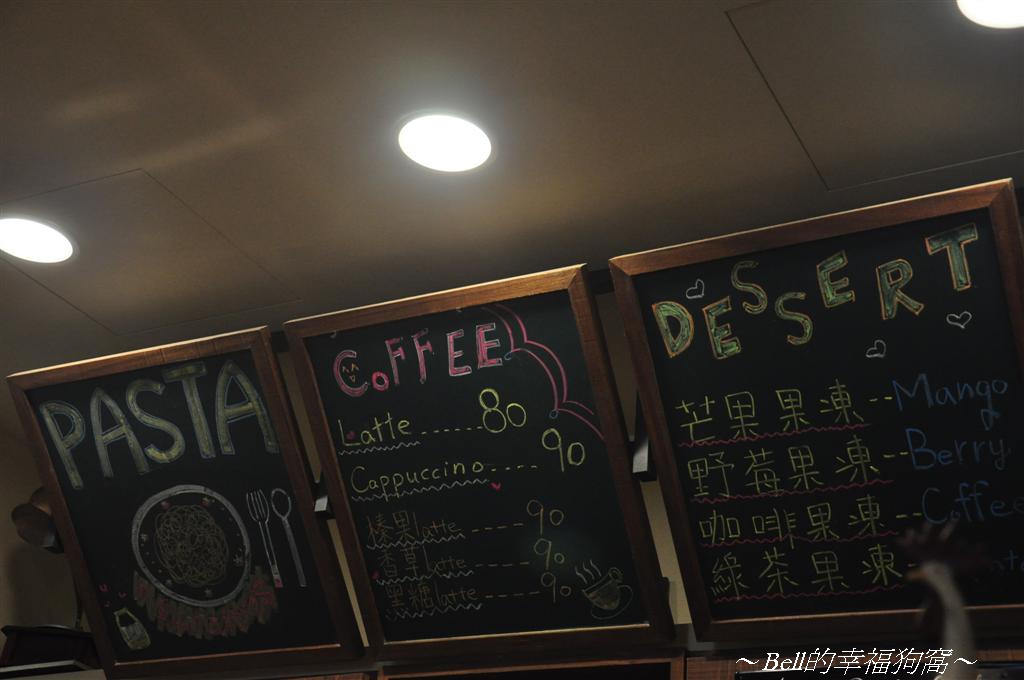 PASTA
COFFEE
Latte......80
Cappuccino.....90
榛果latte-----90
香草latte-----90
黑糖latte-----90
DESSERT
芒果果凍--Mango
野莓果凍--Berry
咖啡果凍--Coffee
綠茶果凍
～Bell的幸福狗窩～